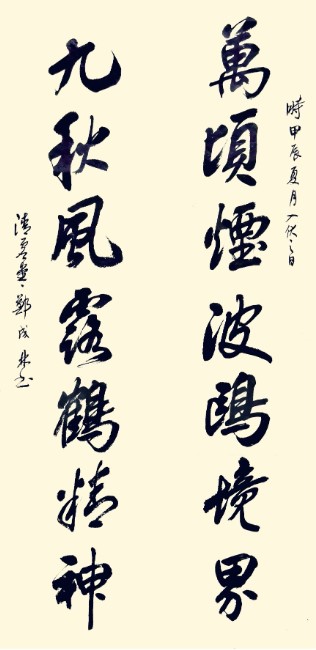 時甲辰夏月入伏之日
萬頃煙波鷗境界
九秋風露鶴精神
鄭成